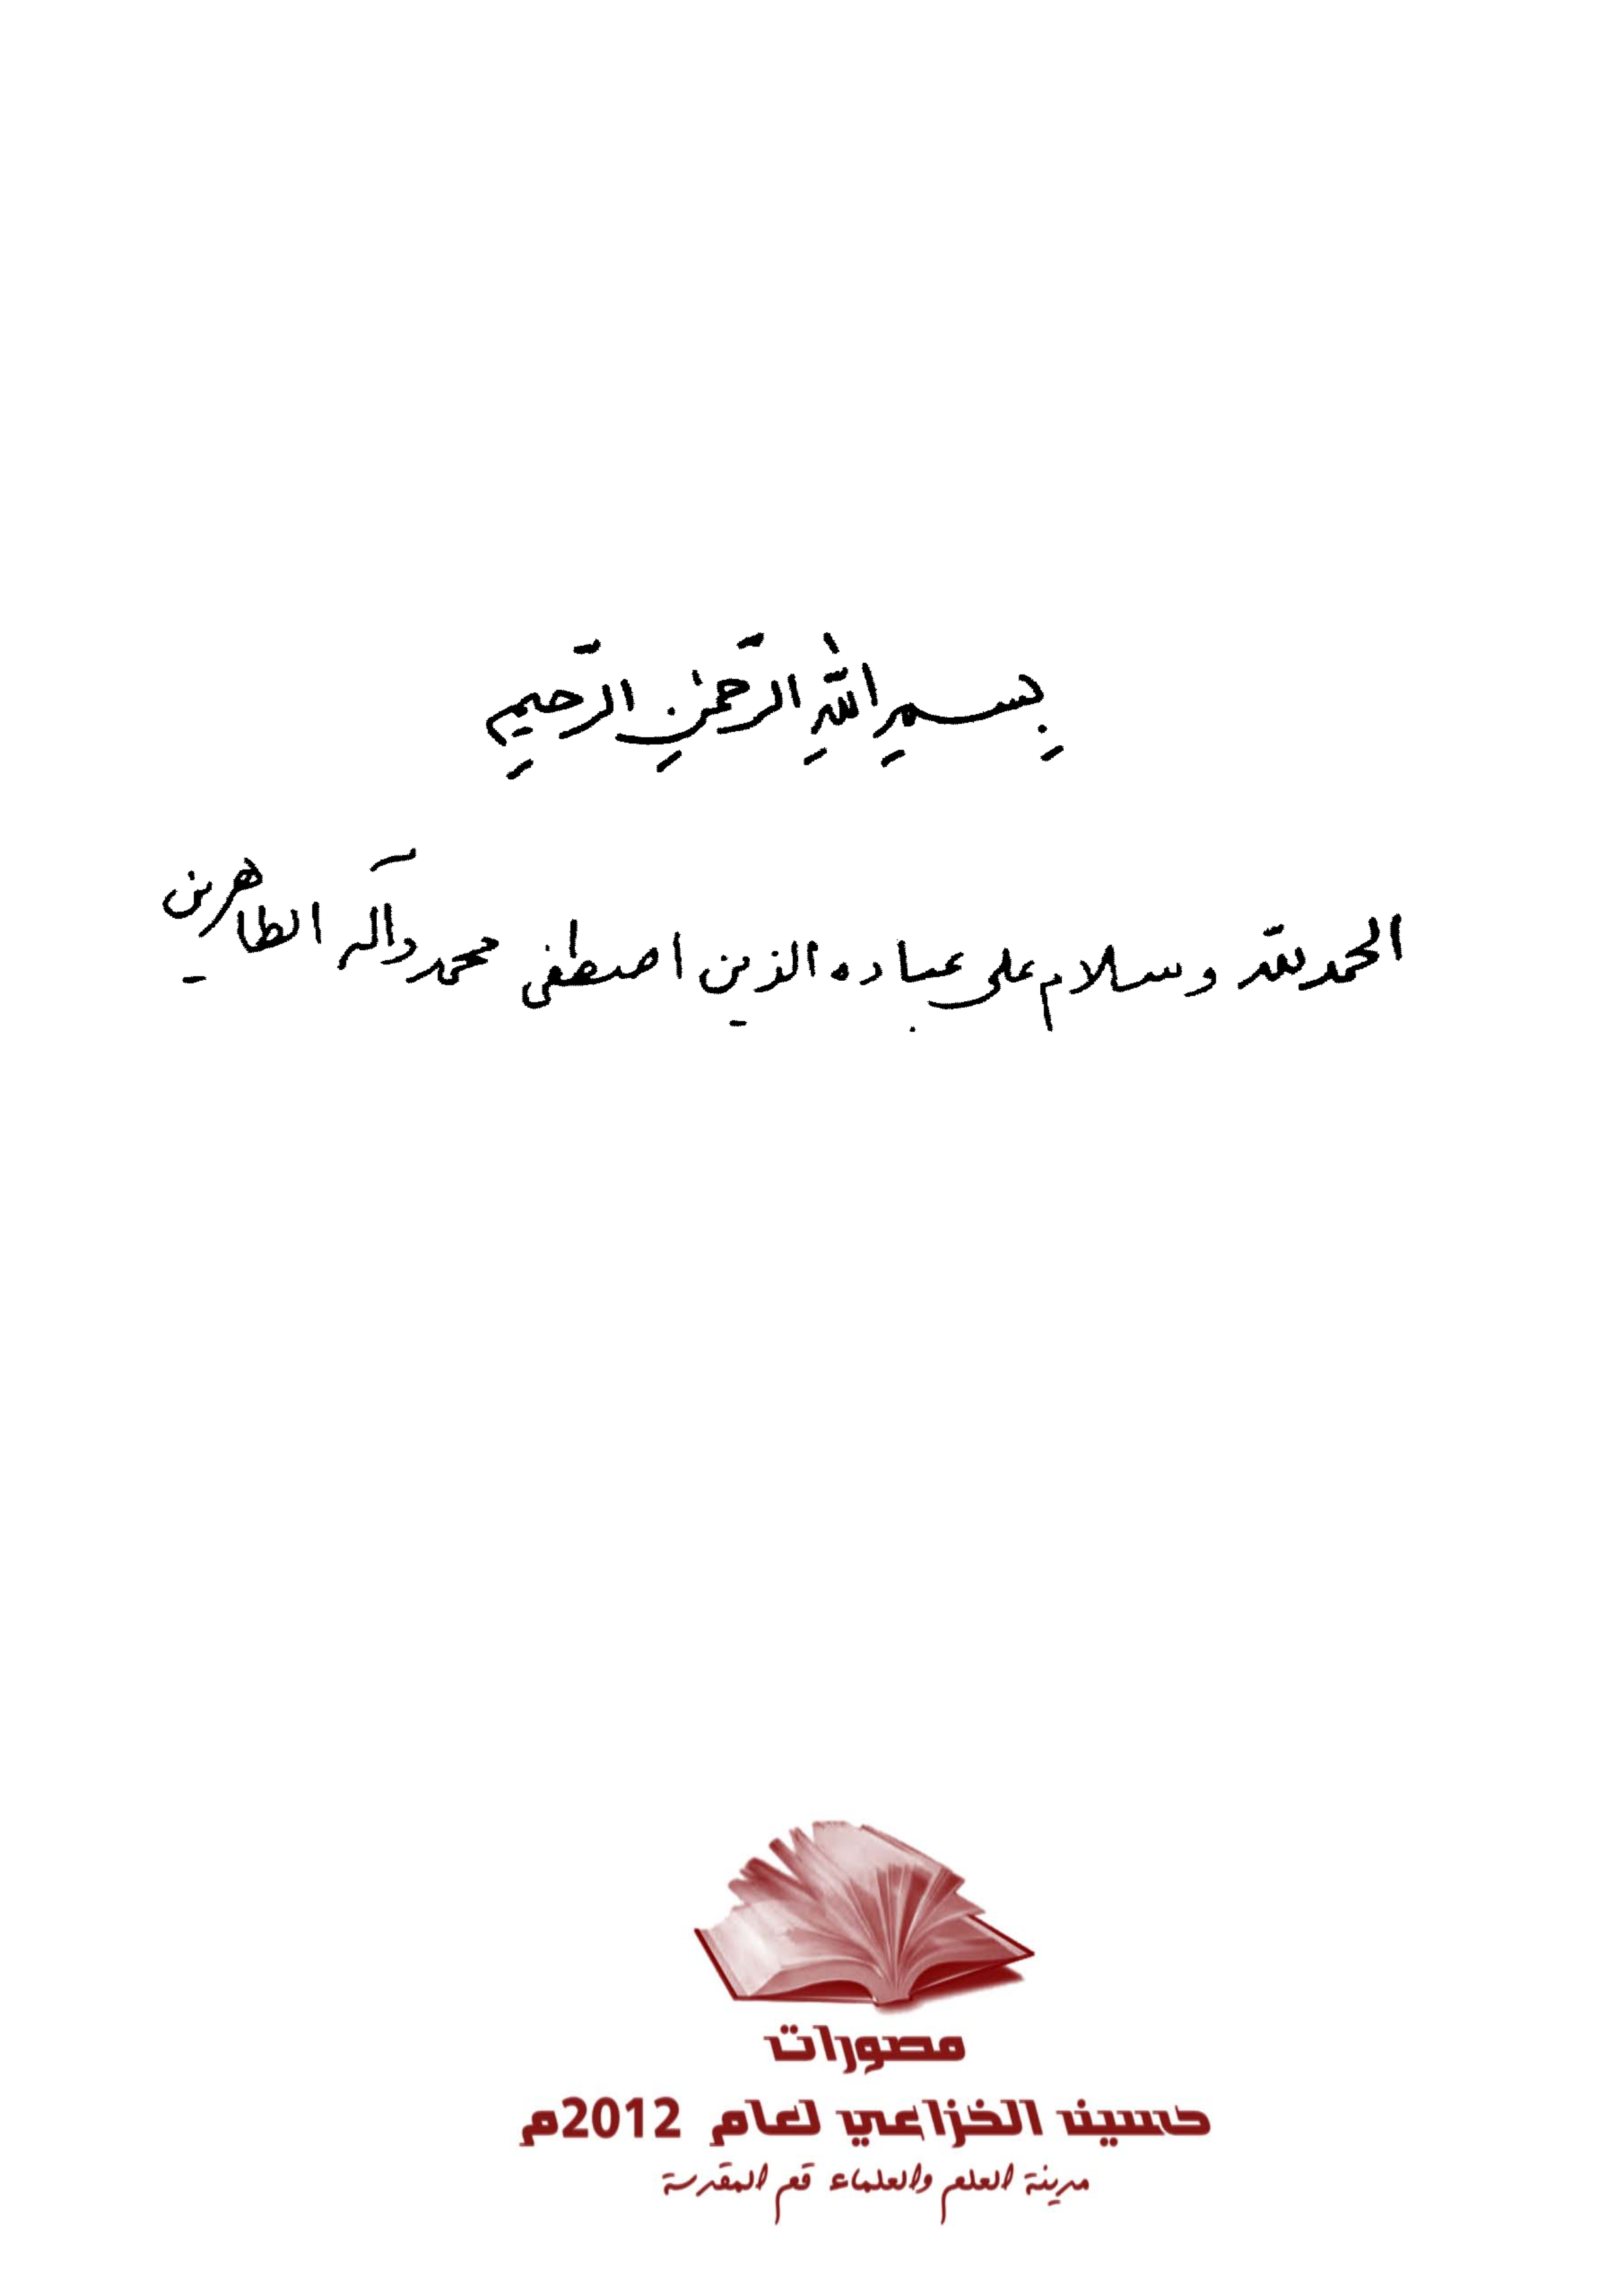 بِسمِ اللّٰهِ الرّحمٰنِ الرّحيمِ
الحمد للّه وسلام على عباده الذين اصطفى محمد وآله الطاهرين
مصورات
حسين الخزاعي لعام 2012م
مدينة العلم والعلماء قم المقدسة